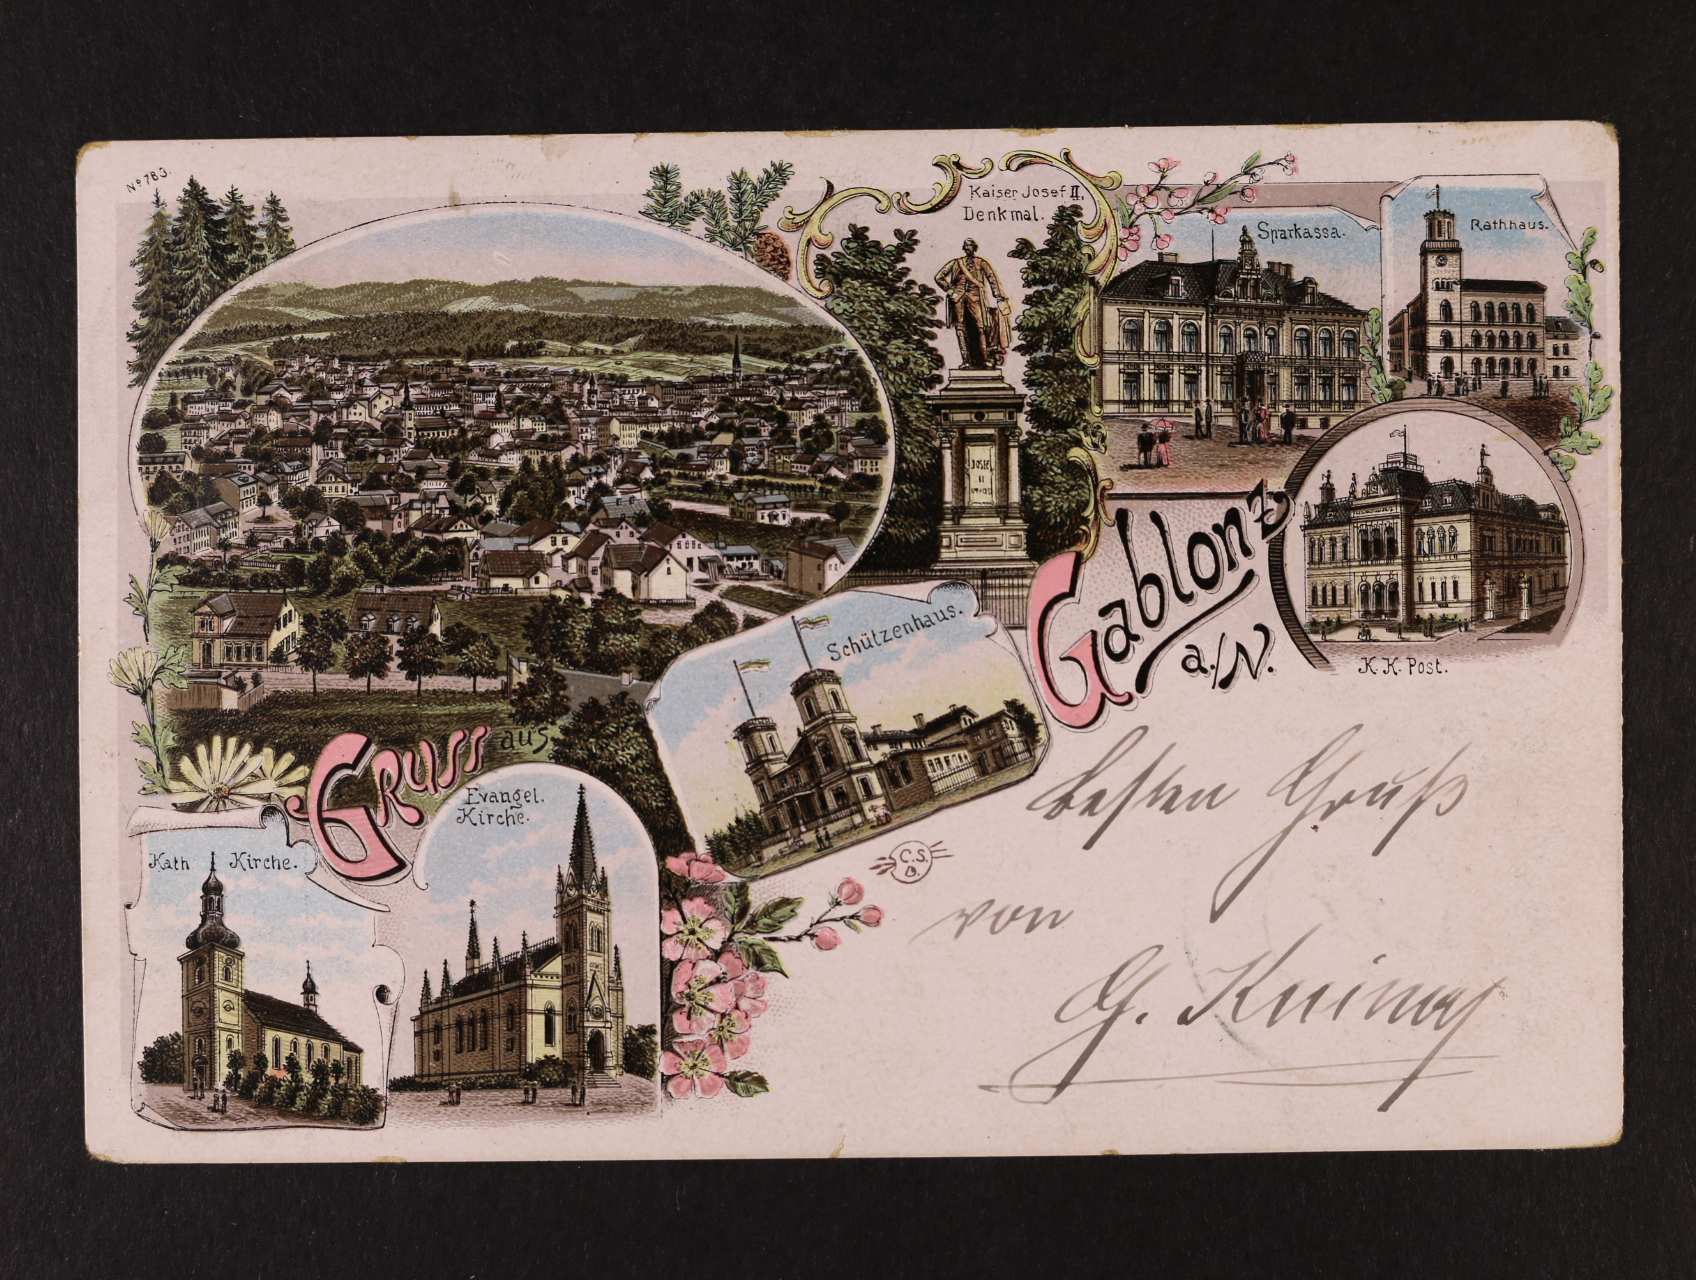 No 783.
Kaiser Josef II.
Denkmal.
Sparkassa.
Rathhaus.
JOSEF
II
K. K. Post.
Gruss aus
Gablonz
a./N.
Schützenhaus.
Evangel.
Kirche.
Kath Kirche.
C.S.
D.
besten Gruß
von
G.